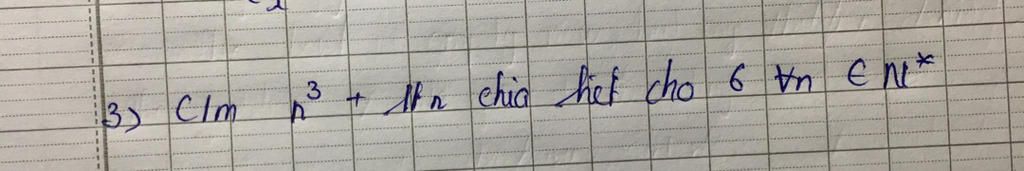 3) C/m n³ + 11n chia hết cho 6 ∀n ∈ N*